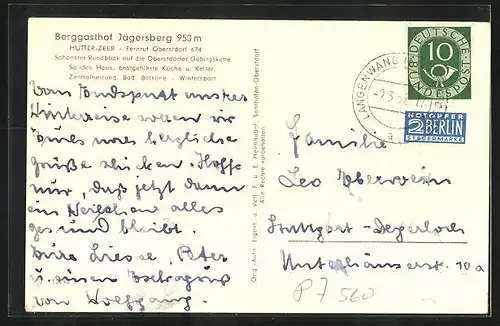 Berggasthof Jägersberg 950 m
HUTTER-ZEEB - Fernruf Oberstdorf 674
Schönster Rundblick auf die Oberstdorfer Gebirgskette
Solides Haus, bestgeführte Küche u. Keller,
Zentralheizung, Bad, Balkone - Wintersport
Vom Endspurt unsrer
Winterreise wollen wir
Euch noch herzliche
Grüße schicken. Hoffe
nur, daß jetzt dann
ein Weilchen alles
gesund bleibt.
Eure Liesel, Peter
u. einen
von Wolfgang.
Orig.-Aufn. Eigent. u. Verl. F. u. E. Heimhuber, Sonthofen-Oberstdorf
Alle Rechte vorbehalten
LANGENWANG
a
DEUTSCHE
10
BUNDESPOST
NOTOPFER
2 BERLIN
STEUERMARKE
Familie
Leo
Stuttgart-Degerloch
10a
P7 560